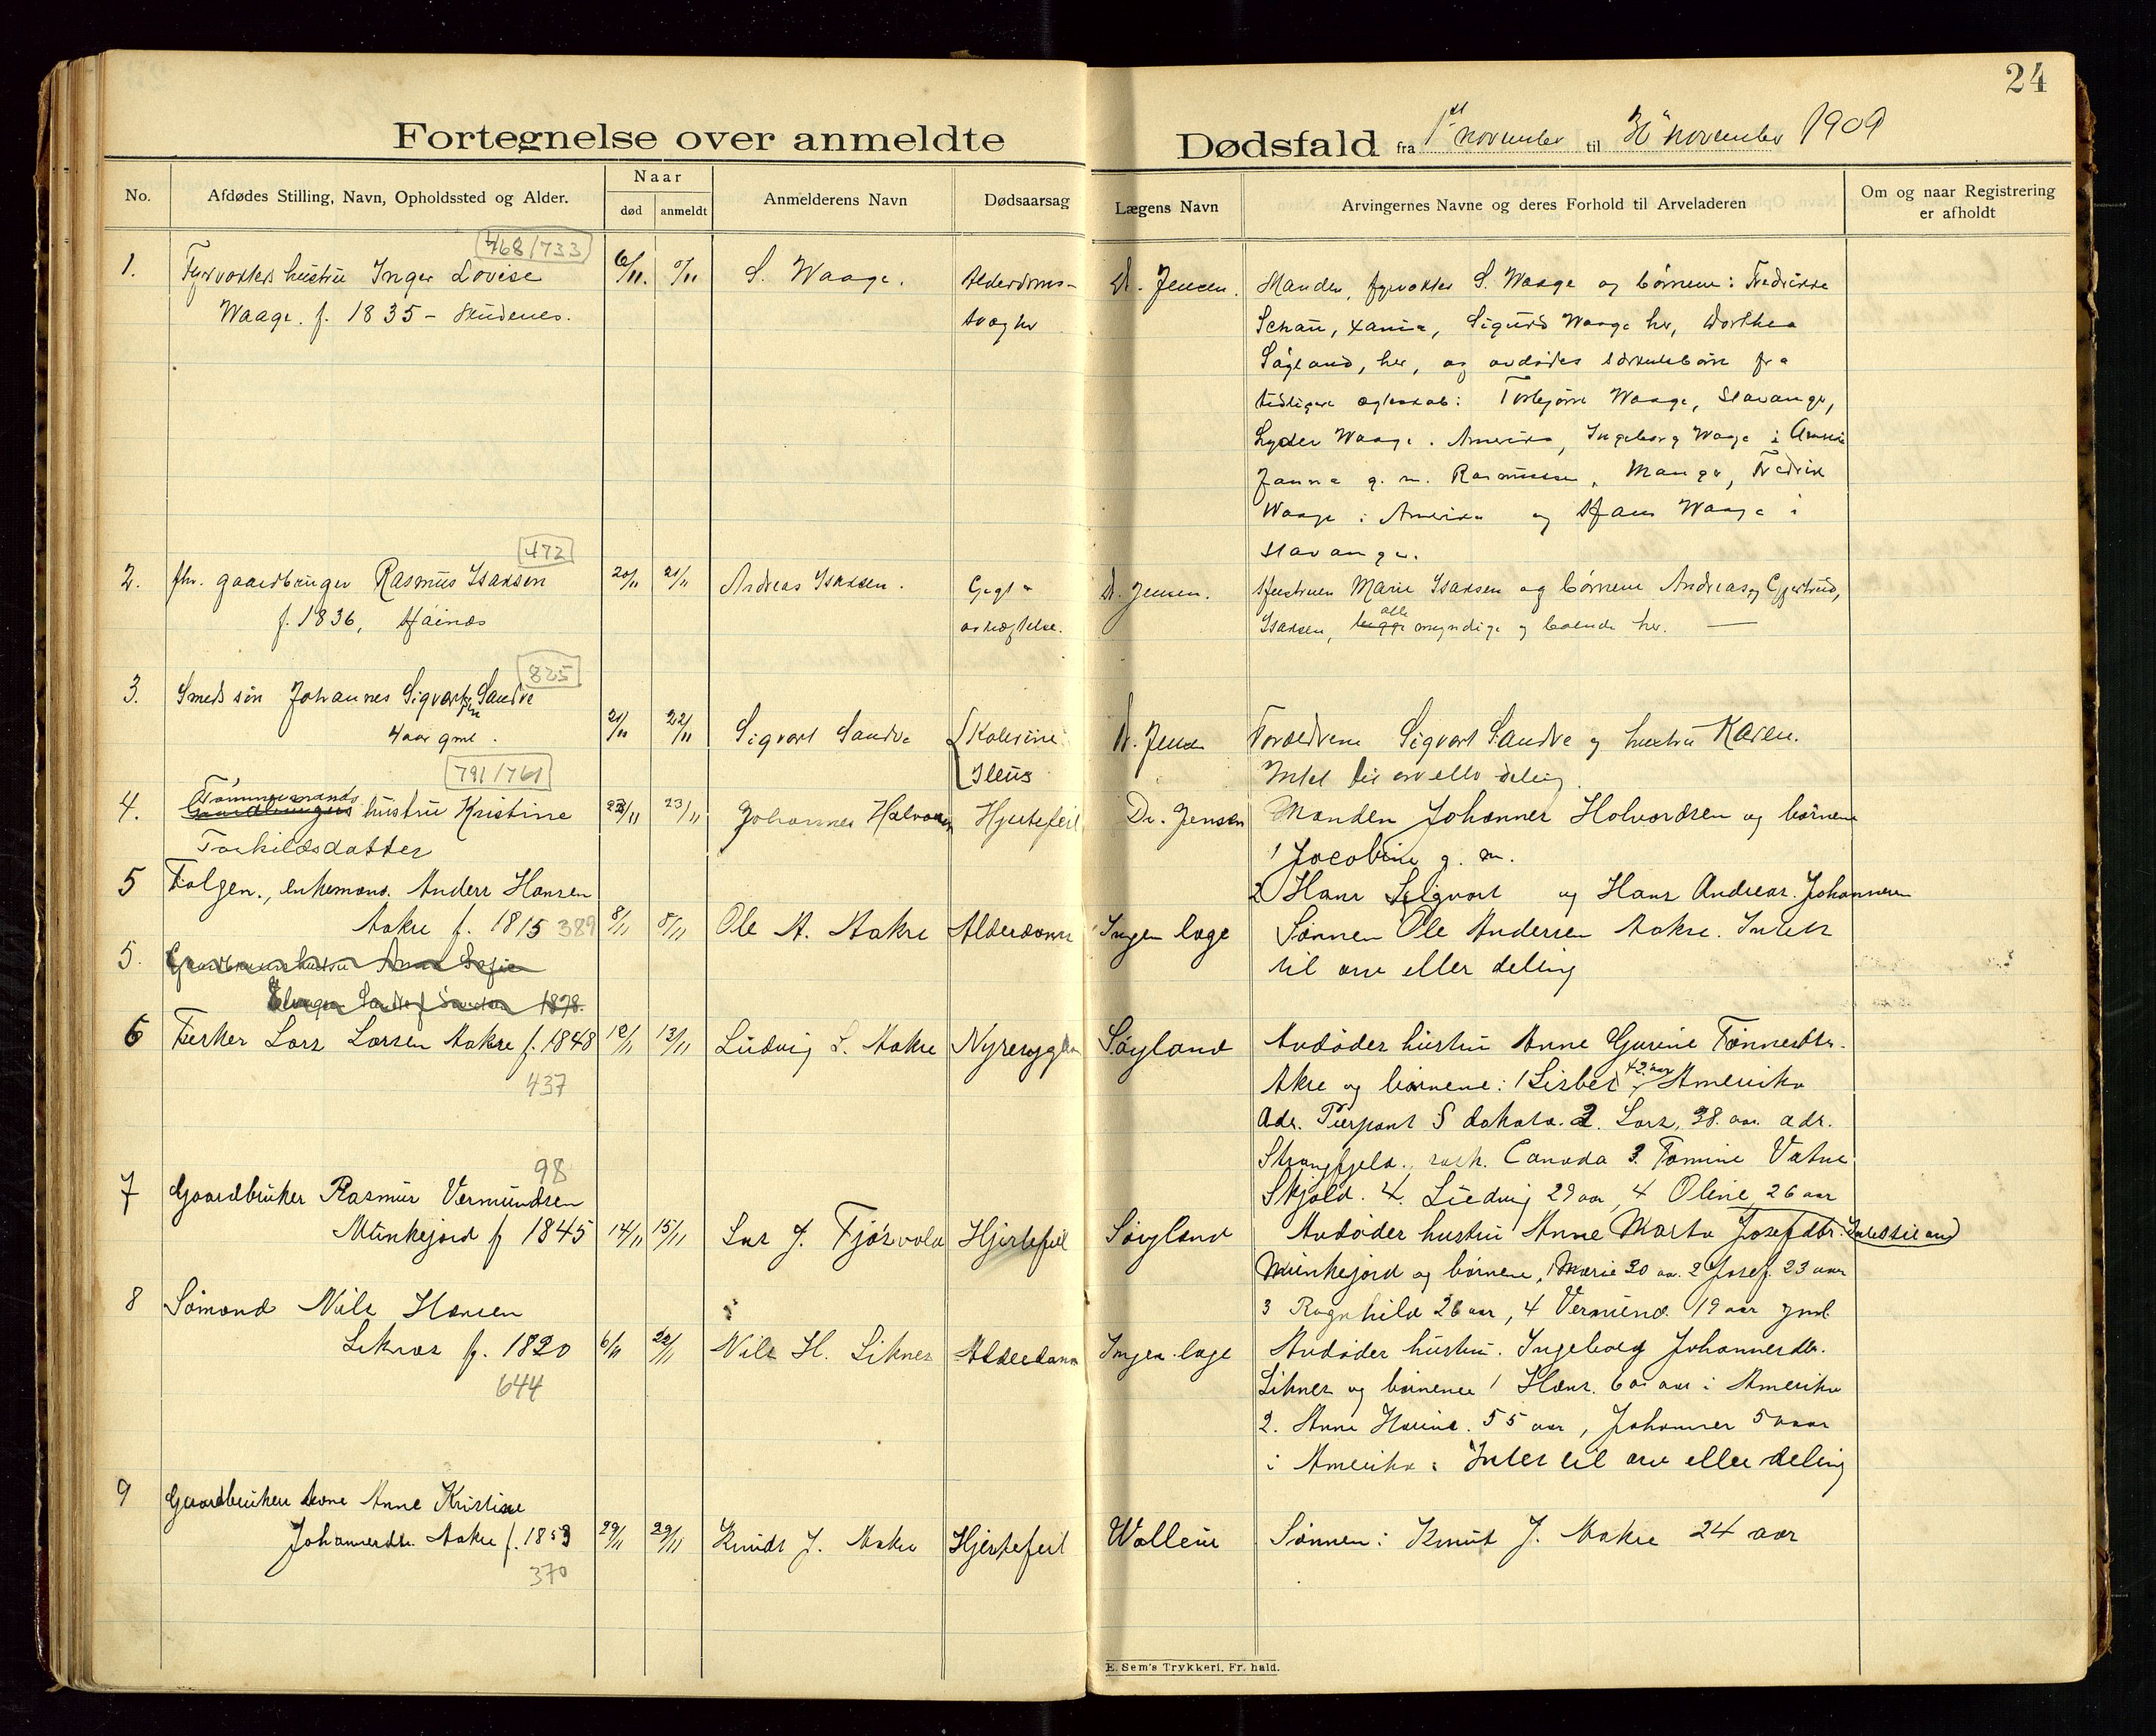 24
Fortegnelse over anmeldte Dødsfald fra 1st november til november 1909
No.
Afdødes Stilling, Navn, Opholdssted og Alder.
Naar
død
anmeldt
Anmelderens Navn
Dødsaarsag
Lægens Navn
Arvingernes Navne og deres Forhold til Arveladeren
Om og naar Registrering
er afholdt
468/733
1. Fyrvokters hustru Inger Lovise
Waage. f. 1835 - Skudenes.
6/11.
S. Waage.
Alderdoms-
svaghet
Dr. Jensen.
Manden, fyrvokter S. Waage og børnene: Fredrikke
Schau, Sigurd Waage her, Dorthea
her, og avdødes særkulsbørn fra
tidligere egteskab: Torbjørn Waage, Stavanger,
Lyder Waage. Amerika, Ingeborg Waage i
g. m. Rasmussen, Fredrik
Waage i Amerika og Hans Waage i
Stavanger.
472
2. fhv. gaardbruger Rasmus Isaksen
f. 1836, Høines
20/11
21/11
Andreas Isaksen.
Dr. Jensen.
Hustruen Marie Isaksen og børnene Andreas og Gjertrud,
Isaksen, alle myndige og boende her.
825
3. Smeds søn Johannes Sigvartsen Sandve
4 aar gml.
21/11
22/11
Sigvart Sandve
Kolerine
Ileus
Dr. Jensen
Forældrene Sigvart Sandve og hustru Karen.
Intet til arv eller deling
791/761
4. Tømmermands hustru Kristine
Torkildsdatter
23/11
23/11
Johannes Halvorsen
Hjertefeil
Dr. Jensen
Manden Johannes Holvordsen og børnene
1 Jacobine g. m.
2 Hans Sigvart og Hans Andreas Johannesen
5 Folgem., enkemand. Anders Hansen
Aakre f. 1815 389
8/11
8/11
Ole A. Aakre
Alderdom
Ingen læge
Sønnen Ole Andersen Aakre. Intet
til arv eller deling
5. Gaardbrukerhustru Anna Sofie
1878.
6 Fisker Lars Larsen Aakre f. 1848
437
12/11
13/11
Ludvig L. Aakre
Nyresygdom
Søyland
Avdødes hustru Anne Gurine Tønnesdtr.
Akre og børnene: 1 Lisbet 42 aar Amerika
Adr. Pierpont S dakota. 2. Lars, 38. aar. adr.
Canada 3. Tomine Vatne
Skjold. 4. Ludvig 29 aar, 4 Oline 26 aar
98
7 Gaardbruker Rasmus Vermundsen
Munkejord f 1845
14/11
15/11
Lars J. Fjøsvold
Hjertefeil
Søyland
Avdødes hustru Anne Marta Josefdtr. Intet til arv
Munkejord og børnene, 1 Marie 30 aar. 2 Josef. 23 aar
3 Ragnhild 26 aar, 4 Vermund. 19 aar gml
8 Sømand Nils Hansen
Liknes f. 1820
644
6/11
22/11
Nils H. Liknes
Alderdom
Ingen læge
Avdødes hustru. Ingeborg Johannesdtr.
Liknes og børnene 1 Hans. 60 aar i Amerika
2. Anne Hurine. 55 aar, Johannes 50 aar
i Amerika: Intet til arv eller deling
9 Gaardbrukers kone Anne Kristine
Johannesdtr. Aakre f. 1853
370
29/11
29/11
Knudt J. Aakre
Hjertefeil
Wallem
Sønnen: Knut J. Aakre 24 aar
E. Sem's Trykkeri. Fr. hald.